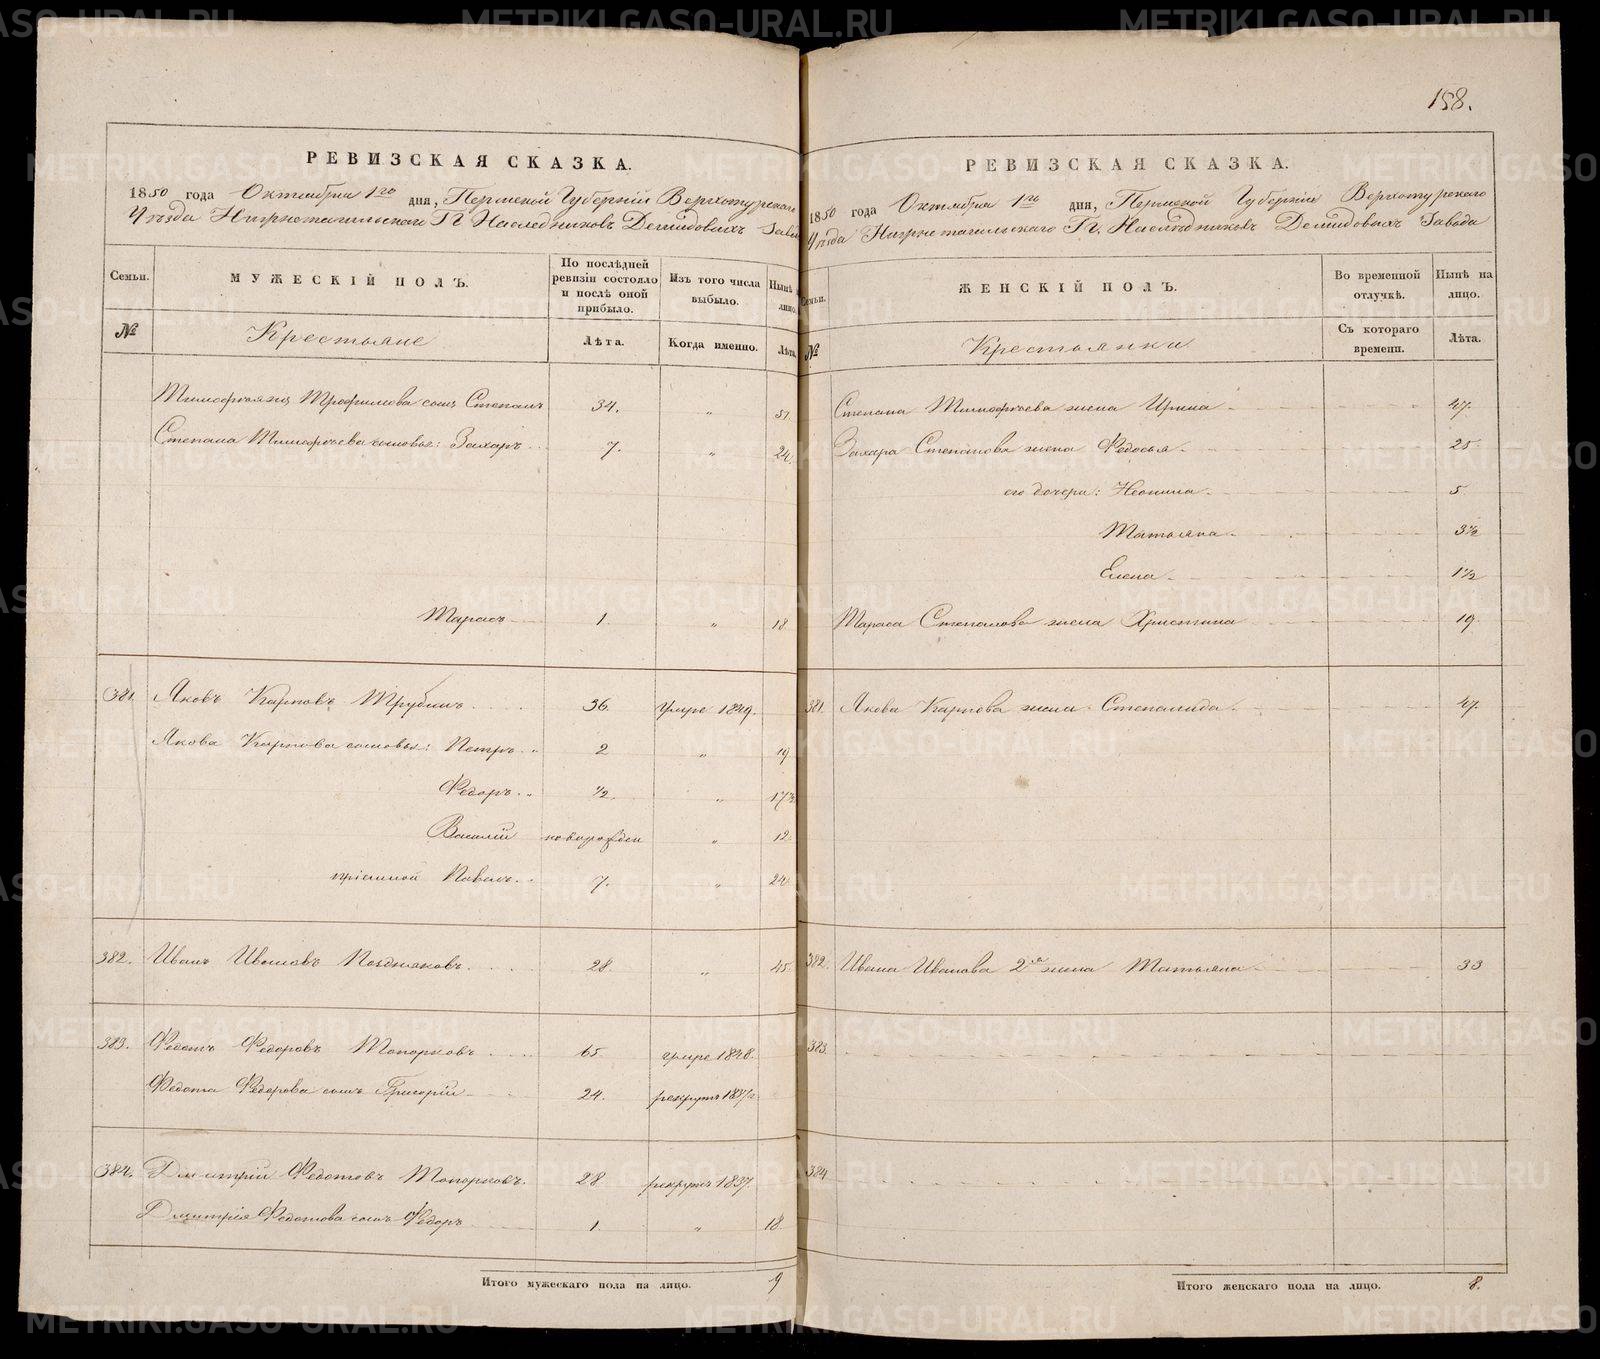 158.
РЕВИЗСКАЯ СКАЗКА.
1850 года Октября 1го дня, Пермской Губерніи Верхотурскаго
Уѣзда Нижнетагильскаго Гг. Наслѣдниковъ Демидовыхъ Завода
Семьи. МУЖЕСКІЙ ПОЛЪ. По послѣдней ревизіи состояло и послѣ оной прибыло. Изъ того числа выбыло. Нынѣ на лицо.
№ Крестьяне Лѣта. Когда именно. Лѣта.
Тимофея Трофимова сынъ Степанъ 34. " 51
Степана Тимофѣева сыновья: Захаръ 7. " 24.
Тарасъ 1. " 18
381. Яковъ Карповъ Трубинъ 36. умре 1849.
Якова Карпова сыновья: Петръ 2 " 19
Федоръ ½. " 17½
Василій новорожден " 12
пріемной Павелъ 7. " 24
382. Иванъ Ивановъ Поздняковъ 28. " 45
383. Федотъ Федоровъ Топорковъ 65 умре 1848.
Федота Федорова сынъ Григорій 24. рекрутъ
384. Дмитрій Федотовъ Топорковъ. 28 рекрутъ 1837.
Дмитрія Федотова сынъ Федоръ 1. " 18
Итого мужескаго пола на лицо. 9
РЕВИЗСКАЯ СКАЗКА.
1850 года Октября 1го дня, Пермской Губерніи Верхотурскаго
Уѣзда Нижнетагильскаго Гг. Наслѣдниковъ Демидовыхъ Завода
Семьи. ЖЕНСКІЙ ПОЛЪ. Во временной отлучкѣ. Нынѣ на лицо.
№ Крестьянки Съ котораго времени. Лѣта.
Степана Тимофѣева жена Ирина 47.
Захара Степанова жена Федосья 25
его дочери: Неонила 5
Татьяна 3½
Елена 1½
Тараса Степанова жена Христина 19
381. Якова Карпова жена Степанида 47.
382. Ивана Иванова 2я жена Татьяна 33
383.
384
Итого женскаго пола на лицо. 8.
METRIKI.GASO-URAL.RU